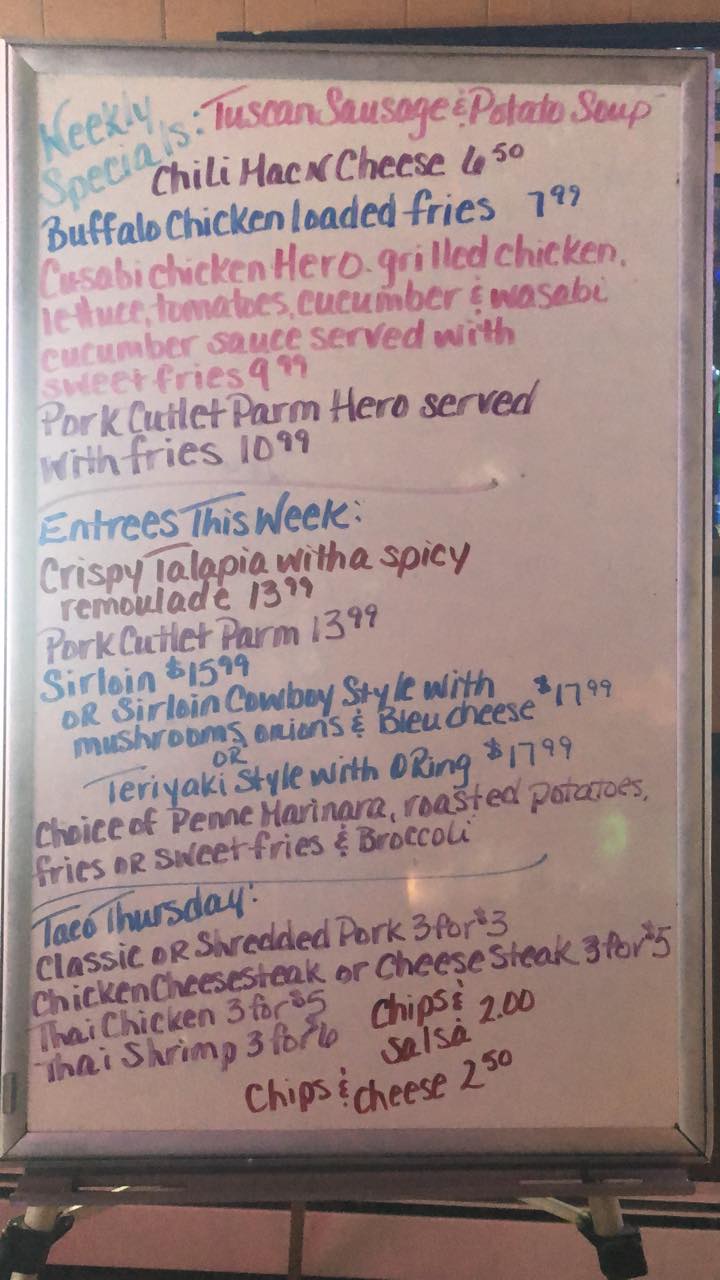 Weekly Specials: Tuscan Sausage & Potato Soup
Chili Mac N Cheese 6 50
Buffalo Chicken loaded fries 7 99
Cusabi chicken Hero. grilled chicken,
lettuce, tomatoes, cucumber & wasabi
cucumber sauce served with
sweet fries 9 99
Pork Cutlet Parm Hero served
with fries 10 99
Entrees This Week:
Crispy Talapia with a spicy
remoulade 13 99
Pork Cutlet Parm 13 99
Sirloin $15 99
OR Sirloin Cowboy Style with
mushrooms, onions & Bleu cheese $17 99
OR
Teriyaki Style with O Ring $17 99
Choice of Penne Marinara, roasted potatoes,
fries OR sweet fries & Broccoli
Taco Thursday:
Classic OR Shredded Pork 3 for $3
Chicken Cheesesteak or Cheese Steak 3 for $5
Thai Chicken 3 for $5
Thai Shrimp 3 for $6
Chips &
Salsa 2.00
Chips & cheese 2 50